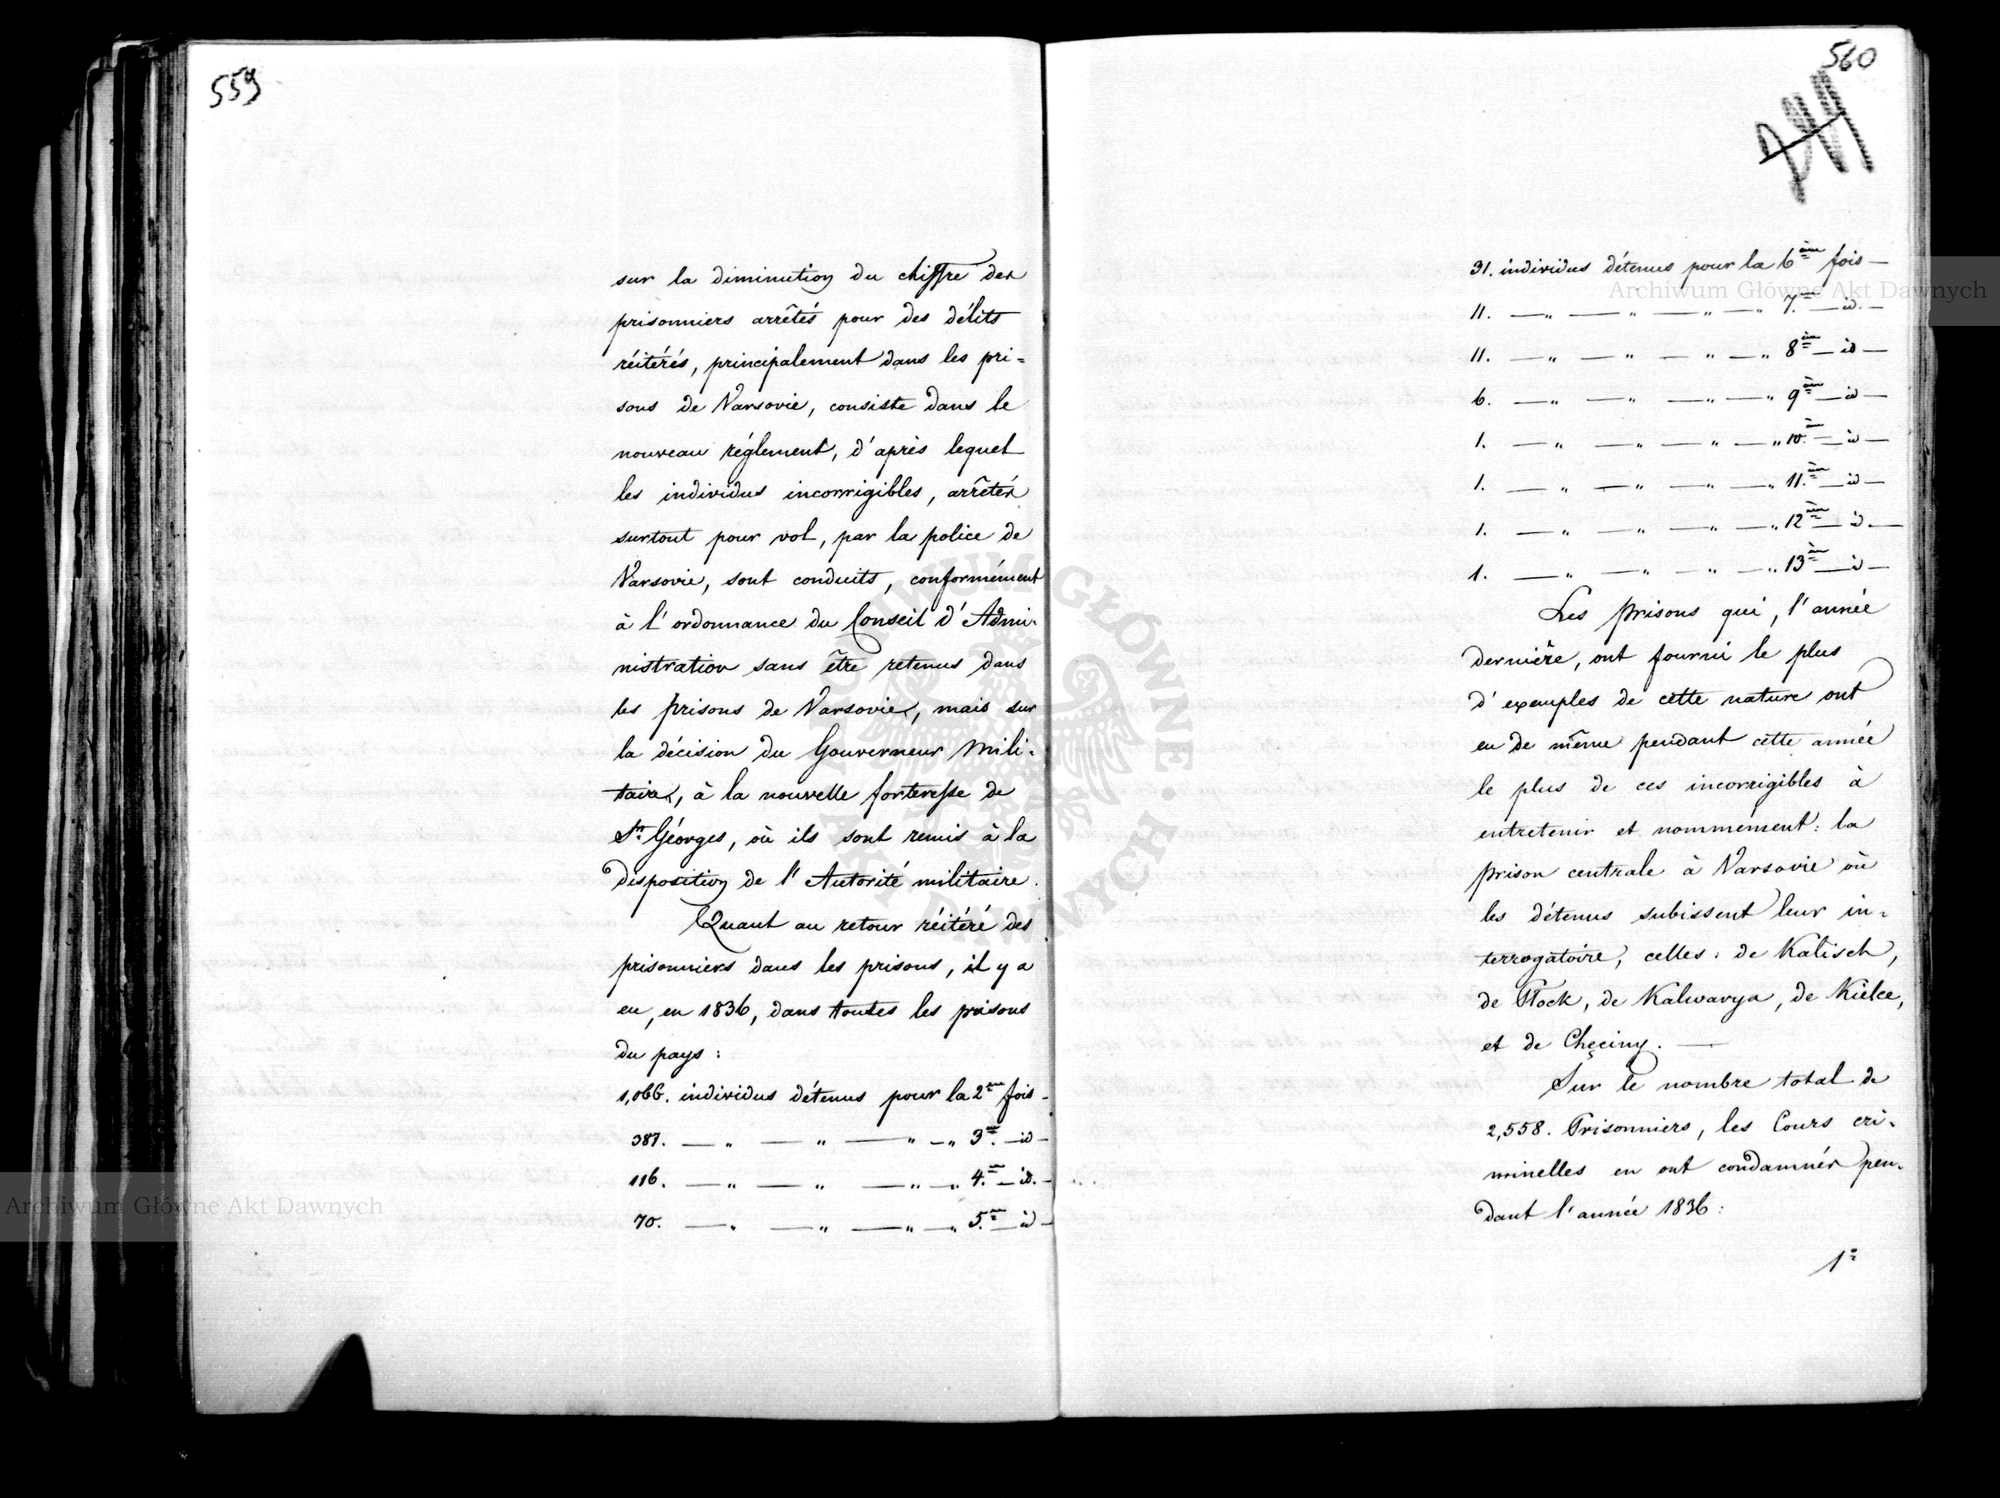 559
sur la diminution du chiffre des
prisonniers arrêtés pour des délits
réitérés, principalement dans les pri=
sons de Varsovie, consiste dans le
nouveau réglement, d'après lequel
les individus incorrigibles, arrêtés
surtout pour vol, par la police de
Varsovie, sont conduits, conformément
à l'ordonnance du Conseil d'Admi-
nistration sans être retenus dans
les prisons de Varsovie, mais sur
la décision du Gouverneur Mili-
taire, à la nouvelle forteresse de
St Géorges, où ils sont remis à la
disposition de l'Autorité militaire.
Quant au retour réitéré des
prisonniers dans les prisons, il y a
eu, en 1836, dans toutes les prisons
du pays:
1,066. individus détenus pour la 2ème fois -
387. — „ — „ — „ — „ 3me — id —
116. — „ — „ — „ — „ 4.me — id. —
70. — „ — „ — „ — „ 5.me — id —
560
31. individus détenus pour la 6ème fois —
11. — „ — „ — „ — „ 7.me — id. —
11. — „ — „ — „ — „ 8ème — id —
6. — „ — „ — „ — „ 9ème — id —
1. — „ — „ — „ — „ 10.ème — id —
1. — „ — „ — „ — „ 11.ème — id —
1. — „ — „ — „ — „ 12ème — id. —
1. — „ — „ — „ — „ 13ème — id —
Les prisons qui, l'année
dernière, ont fourni le plus
d'exemples de cette nature ont
eu de même pendant cette année
le plus de ces incorrigibles à
entretenir et nommément: la
prison centrale à Varsovie où
les détenus subissent leur in-
terrogatoire, celles: de Kalisch,
de Płock, de Kalwarya, de Kielce,
et de Chęciny. —
Sur le nombre total de
2,558. Prisonniers, les Cours cri-
minelles en ont condamnés pen-
dant l'année 1836:
1°
Archiwum Główne Akt Dawnych
Archiwum Główne Akt Dawnych
ARCHIWUM GŁÓWNE AKT DAWNYCH